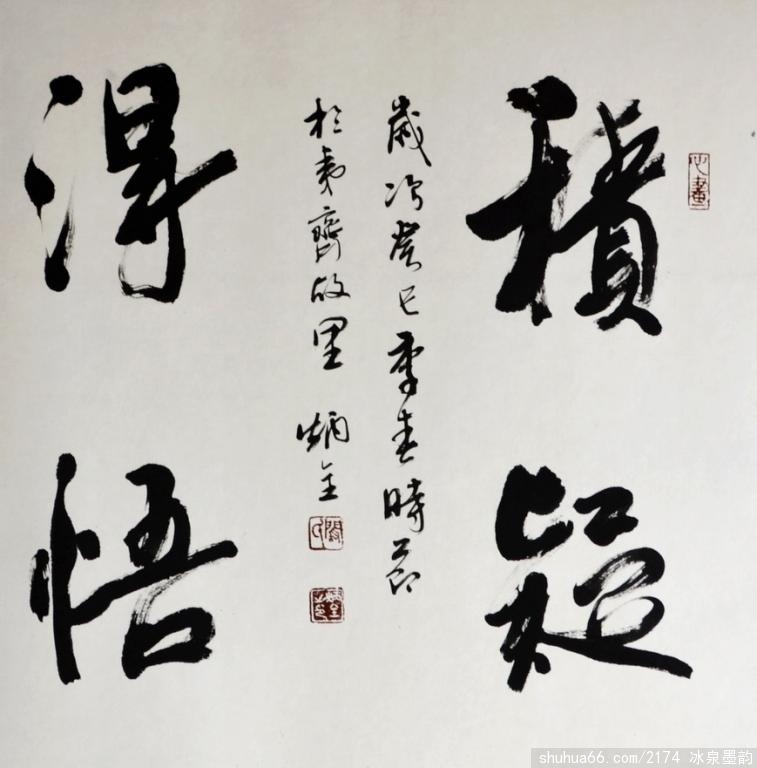 心畫
積疑
歲次癸巳季春時節
於夷齊故里 炳全
得悟
shuhua66.com/2174 冰泉墨韵